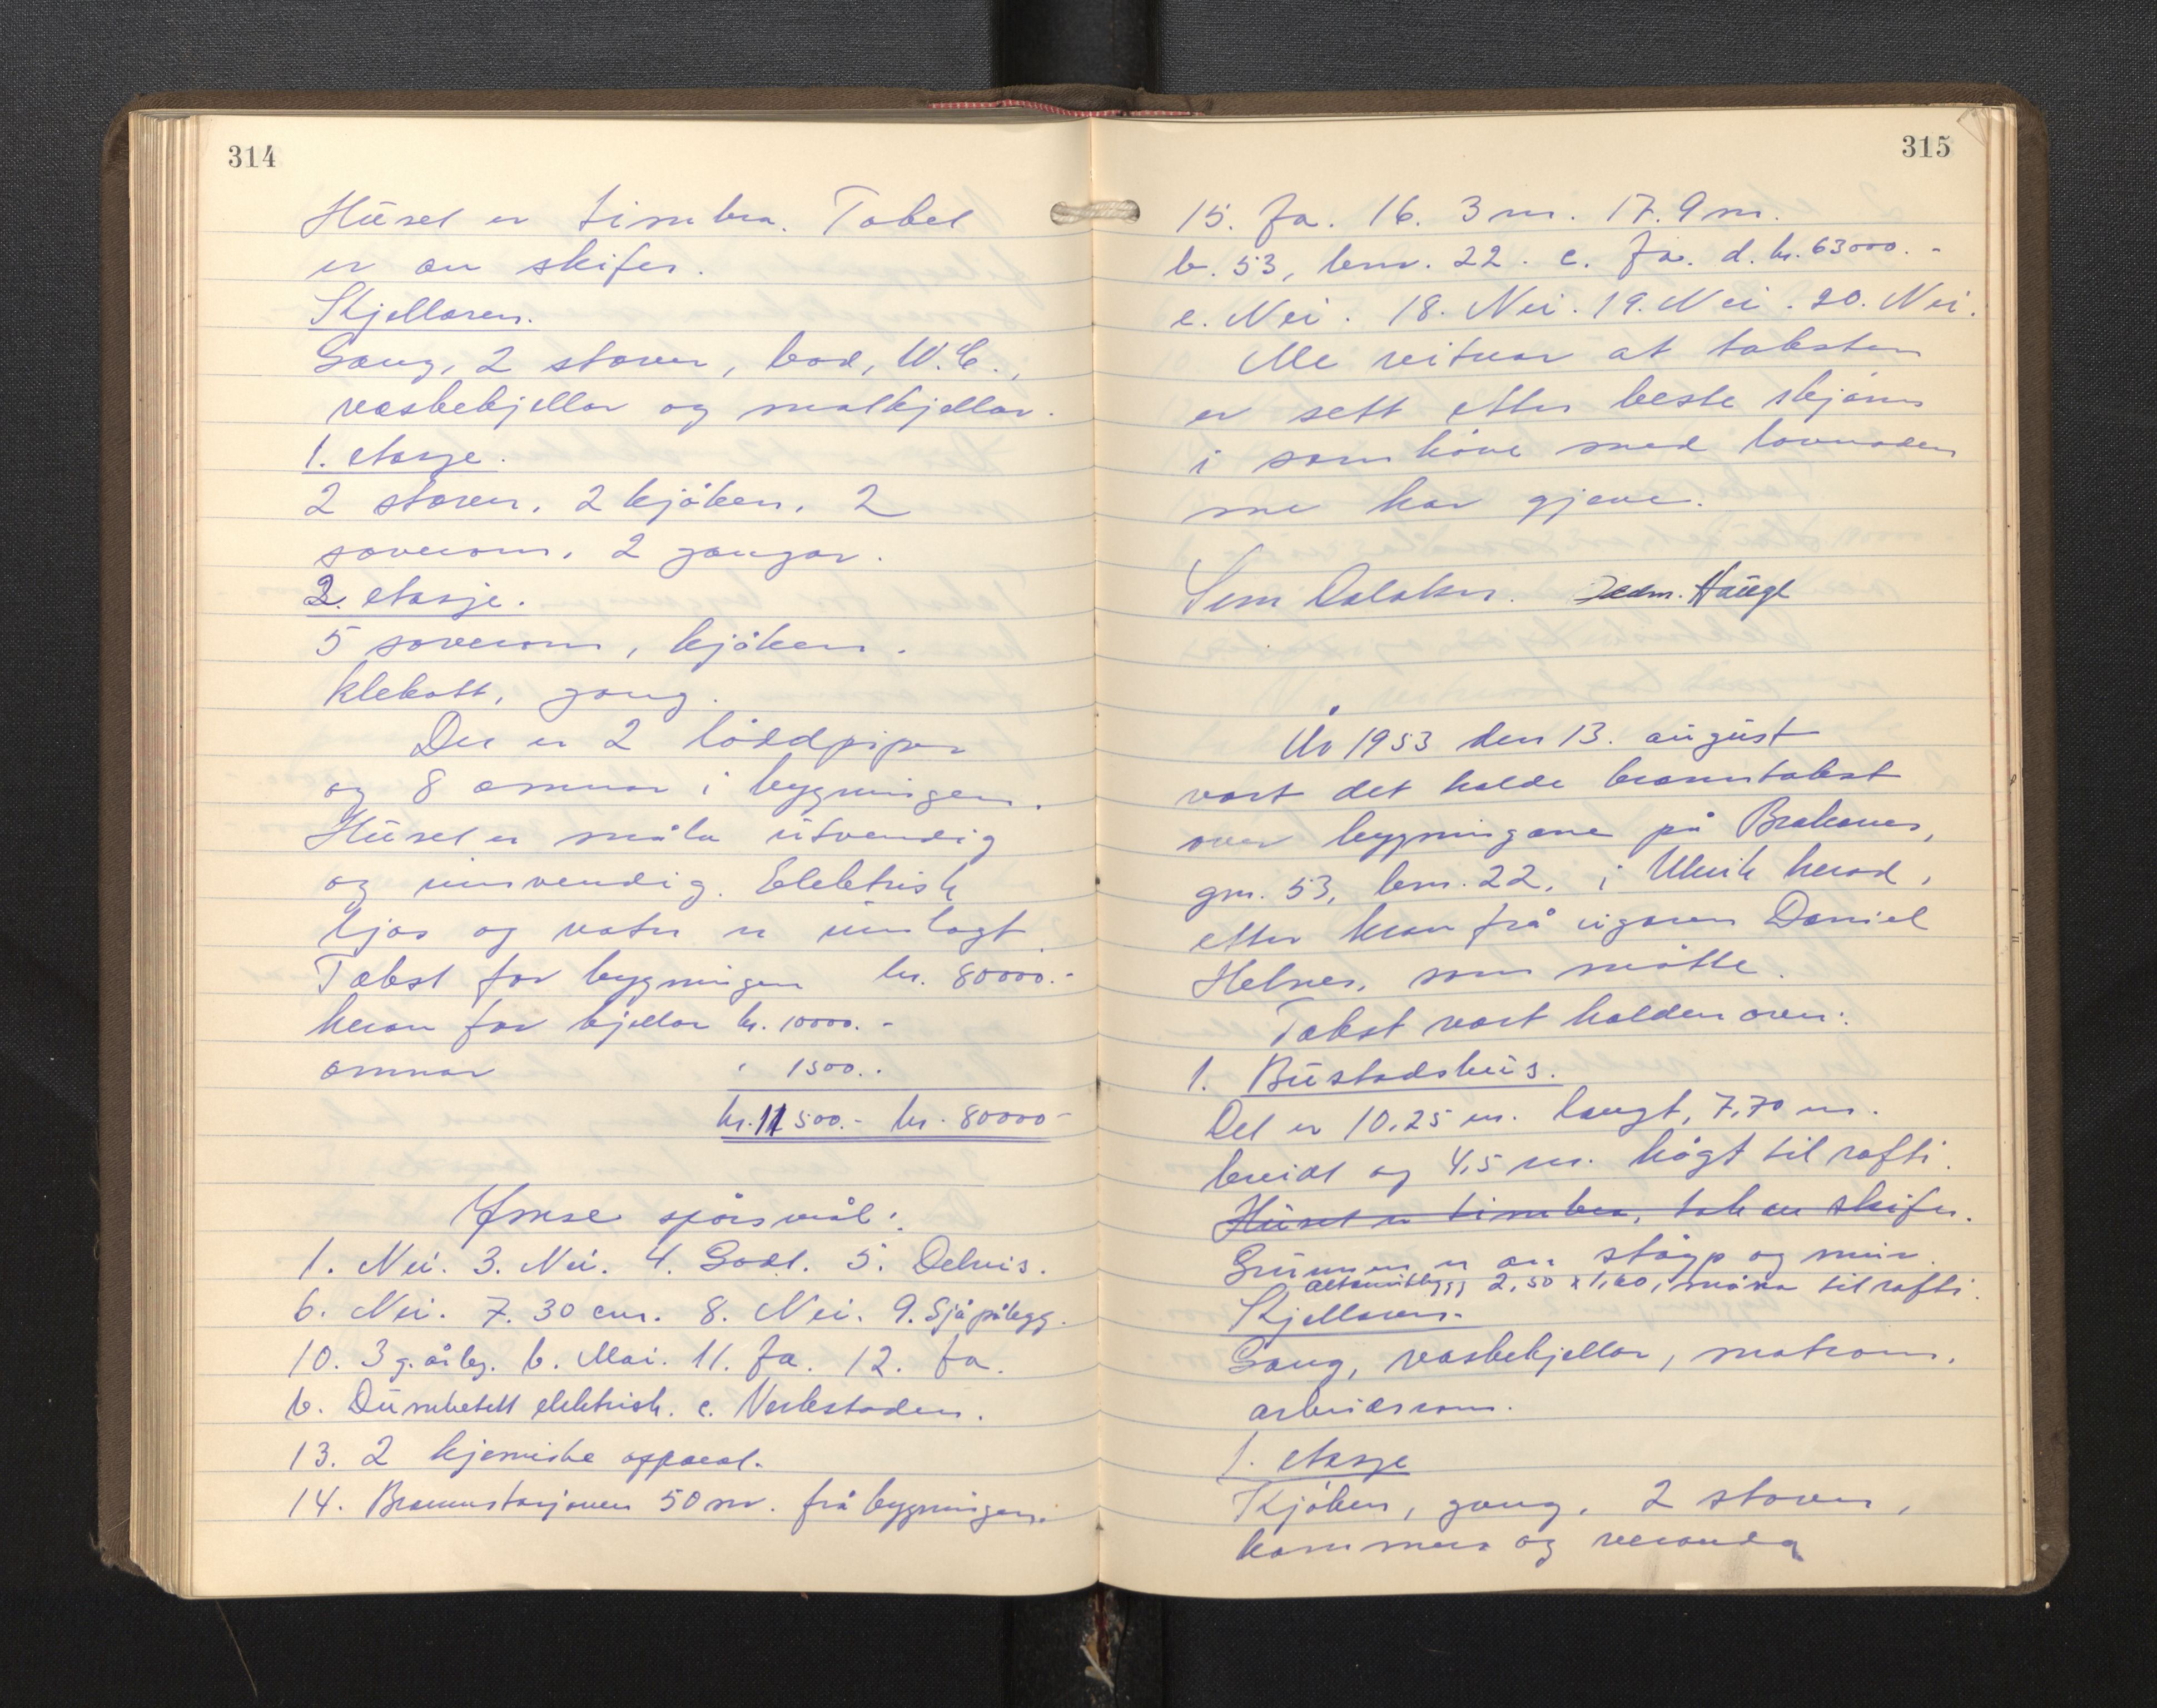 314
Huset er timbra. Taket
er av skifer.
Kjellaren.
Gang, 2 stover, bod, W.C.,
vaskekjellar og matkjellar.
1. etasje.
2 stover, 2 kjøken, 2
soverom, 2 gangar.
2. etasje.
5 soverom, kjøken.
klekott, gang.
Der er 2 loddpiper
og 8 omnar i bygningen.
Huset er måla utvendig
og innvendig. Elektrisk
ljos og vatn er innlagt.
Takst for bygningen kr. 80000.-
herav for kjellar kr. 10000.-
omnar " 1500.-
kr. 11500.- kr. 80000-
Ymse spørsmål:
1. Nei. 3. Nei. 4. Godt. 5. Delvis.
6. Nei. 7. 30 cm. 8. Nei. 9. Sjå pålegg.
10. 3 g. årleg. b. Mai. 11. Ja. 12. Ja.
b. elektrisk. c. Verkstaden.
13. 2 kjemiske apparat.
14. Brannstasjonen 50 m. frå bygningen.
315
15. Ja. 16. 3 m. 17. 9 m.
b. 53, bnr. 22. c. Ja. d. kr. 63000.-
e. Nei. 18. Nei. 19. Nei. 20. Nei.
Me vitnar at taksten
er sett etter beste skjønn
i samhøve med lovnaden
me har gjeve.
Sem Dalaker. Haugl
År 1953 den 13. august
vart det halde branntakst
over bygningane på Brakanes,
gnr. 53, bnr. 22, i Ulvik herad,
etter krav frå eigaren Daniel
Helnes, som møtte.
Takst vart halden over:
1. Bustadshus.
Det er 10,25 m. langt, 7,70 m.
breidt og 4,5 m. høgt til raft.
Huset er timbra, tak av skifer.
Grunnen er av støyp og mur.
2,50 x 1,60, til raft.
Kjellaren.
Gang, vaskekjellar, matrom,
arbeidsrom.
1. etasje
Kjøken, gang, 2 stover,
kammers og veranda